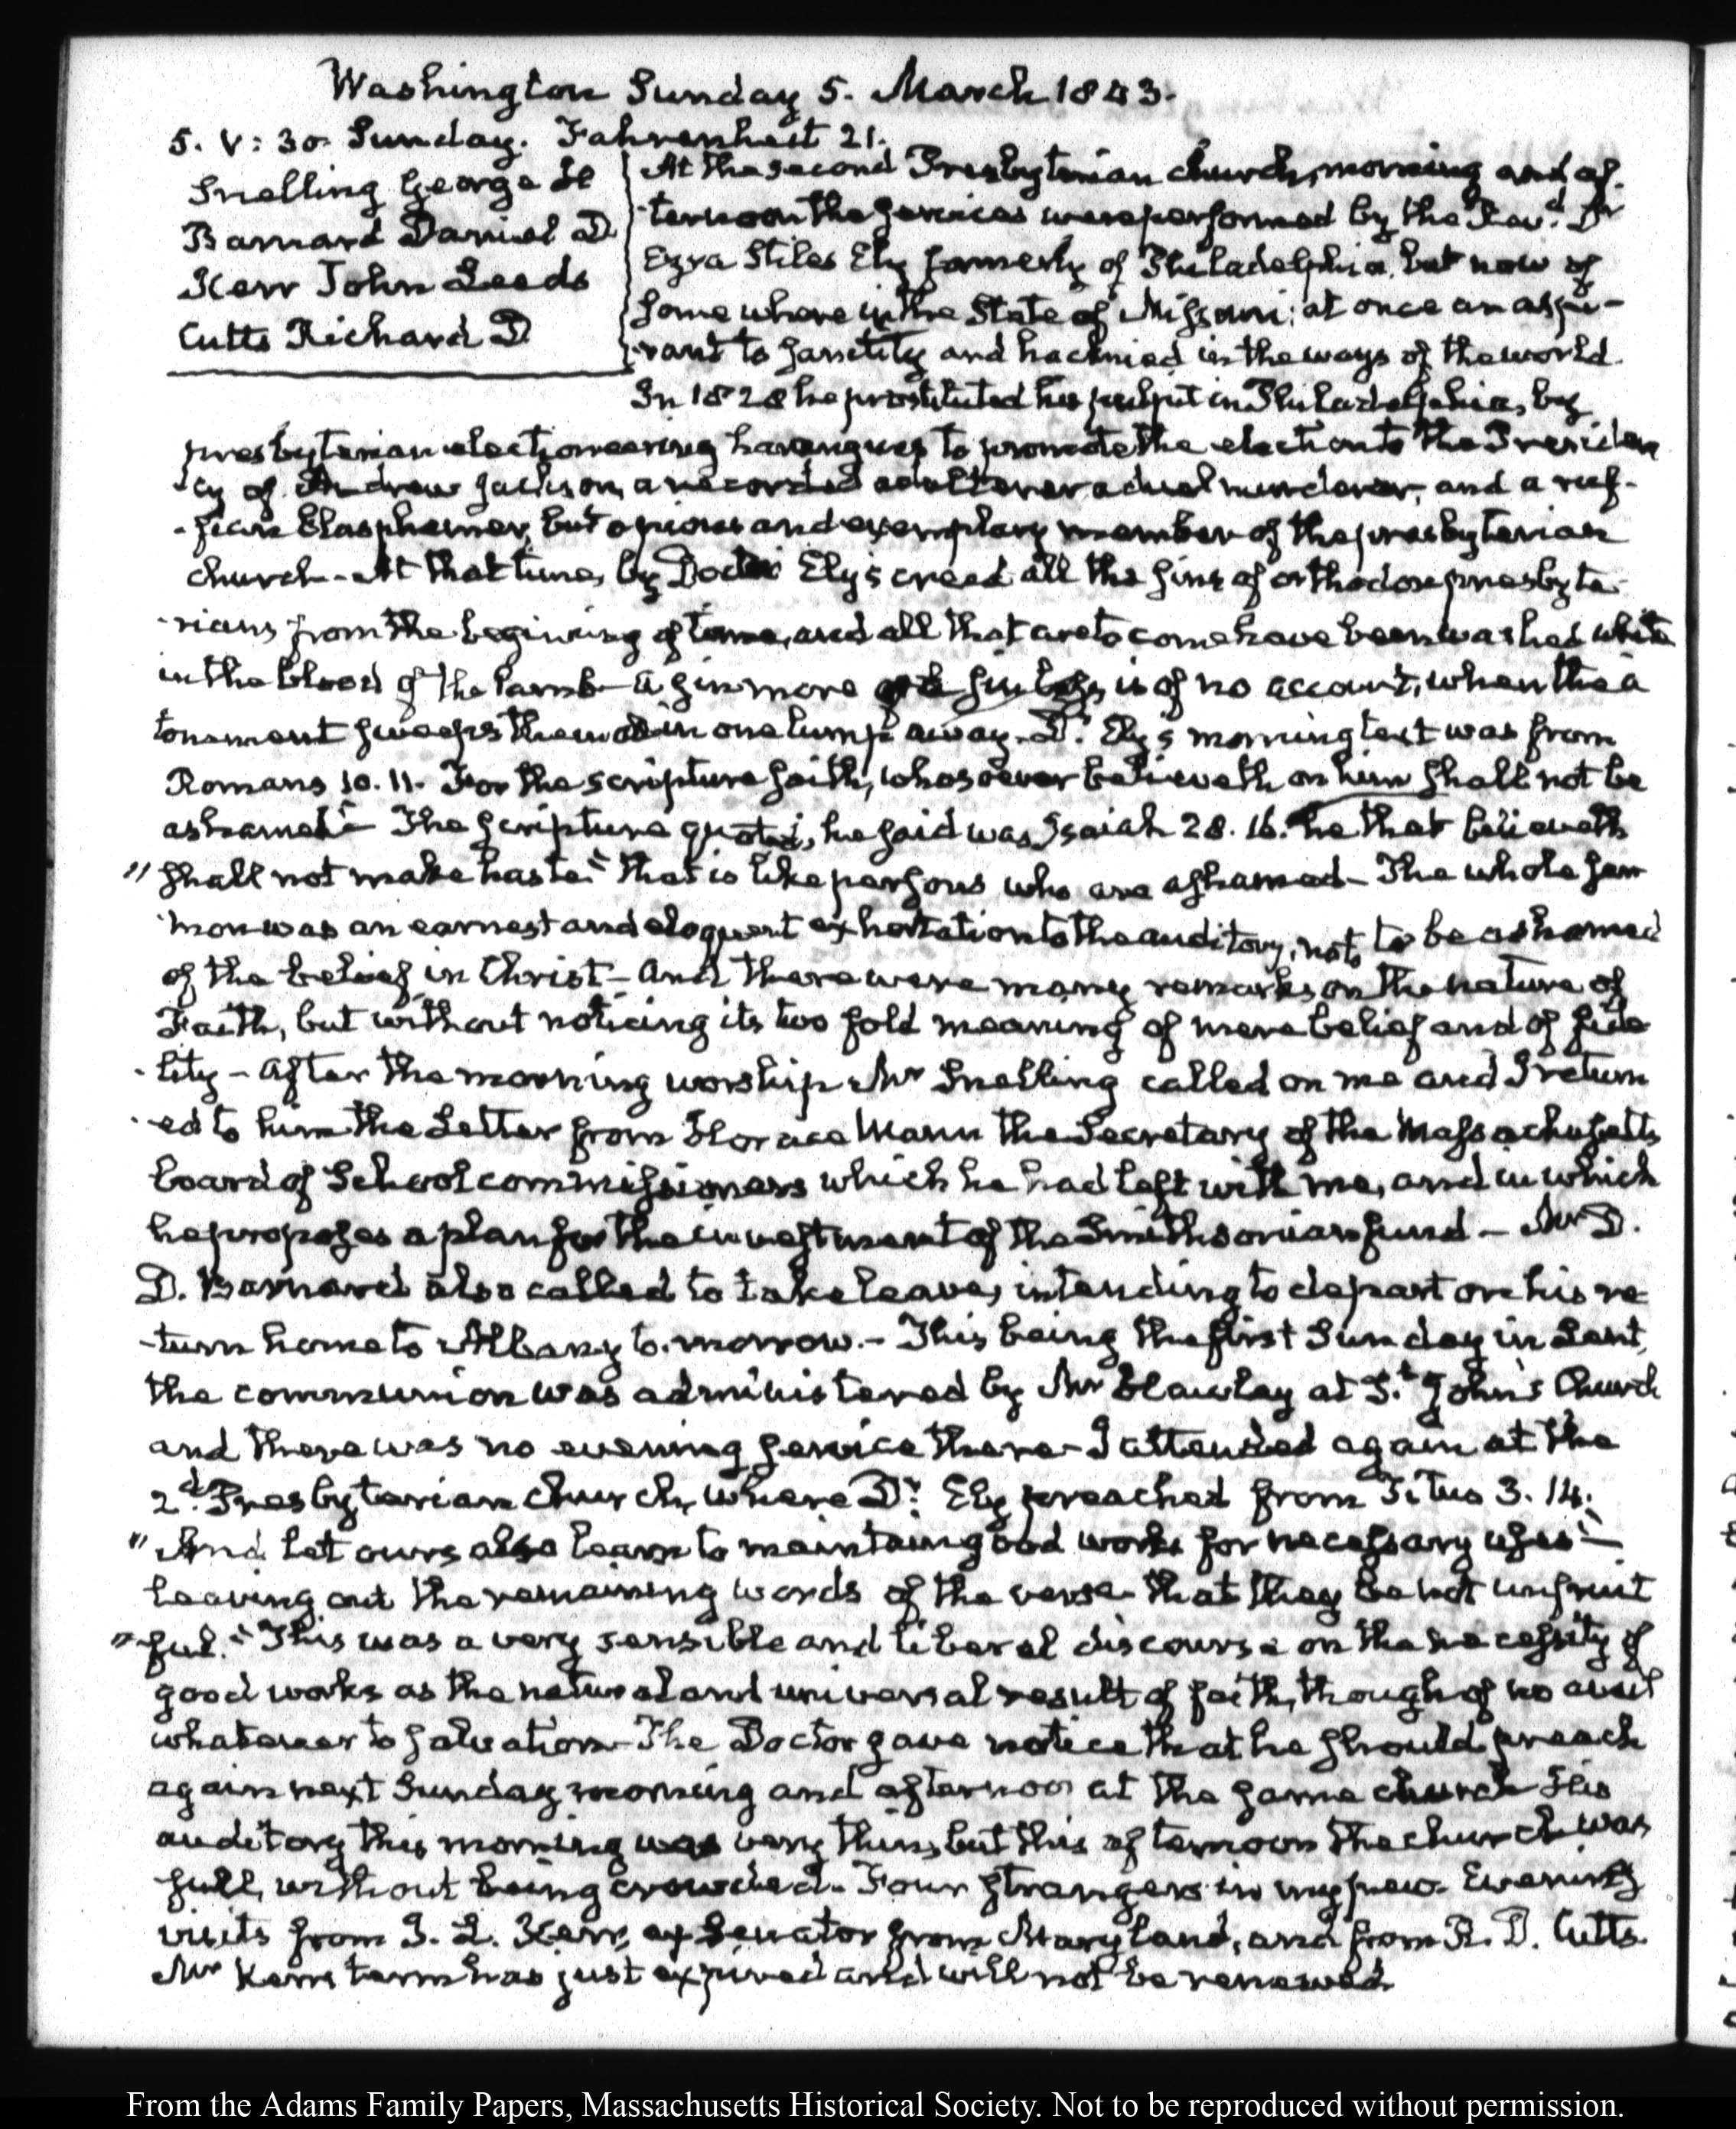 Washington Sunday 5. March 1843.
5. V: 30. Sunday. Fahrenheit 21.
Snelling George H
Barnard Daniel D
Kerr John Leeds
Cutts Richard D
At the second Presbyterian church, morning and af-
ternoon the services were performed by the Revd. Dr
Ezra Stiles Ely formerly of Philadelphia, but now of
somewhere in the State of Missouri; at once an aspi-
rant to sanctity and hacknied in the ways of the world.
In 1828 he prostituted his pulpit in Philadelphia, by
presbyterian electioneering harangues to promote the election to the Presiden
-cy of Andrew Jackson, a recorded adulterer a dual murderer, and a ruf-
-fian blasphemer, but a pious and exemplary member of the presbyterian
church - At that time, by Doctor Ely's creed all the sins of orthodox presbyte-
-rians from the beginning of time, and all that are to come have been washed white
in the blood of the Lamb - a sin more or a sin less, is of no account, when the a
tonement sweeps them all in one lump away. Dr. Ely's morning text was from
Romans 10. 11. For the scripture saith, whosoever believeth on him shall not be
ashamed" The Scripture quoted, he said was Isaiah 28. 16. he that believeth
"shall not make haste" that is like persons who are ashamed - The whole ser
mon was an earnest and eloquent exhortation to the auditory, not to be ashamed
of the belief in Christ - and there were many remarks on the nature of
Faith, but without noticing its two fold meaning of mere belief and of fide
-lity - After the morning worship Mr Snelling called on me and I return
-ed to him the Letter from Horace Mann the Secretary of the Massachusetts
board of School commissioners which he had left with me, and in which
he proposes a plan for the investment of the Smithsonian fund - Mr D.
D. Barnard also called to take leave, intending to depart on his re
-turn home to Albany to-morrow. - This being the first Sunday in Lent,
the communion was administered by Mr Hawley at St. John's Church
and there was no evening service there - I attended again at the
2d. Presbyterian church, where Dr. Ely preached from Titus 3. 14.
"And let ours also learn to maintain good works for necessary uses" -
leaving out the remaining words of the verse that they be not unfruit
"ful." This was a very sensible and liberal discourse on the necessity of
good works as the natural and universal result of faith, though of no avail
whatever to salvation - The Doctor gave notice that he should preach
again next Sunday morning and afternoon at the same church His
auditory this morning was very thin, but this afternoon the church was
full, without being crowded. Four strangers in my pew. Evening
visits from J. L. Kerr, ex Senator from Maryland, and from R. D. Cutts.
Mr Kerrs term has just expired and will not be renewed
From the Adams Family Papers, Massachusetts Historical Society. Not to be reproduced without permission.